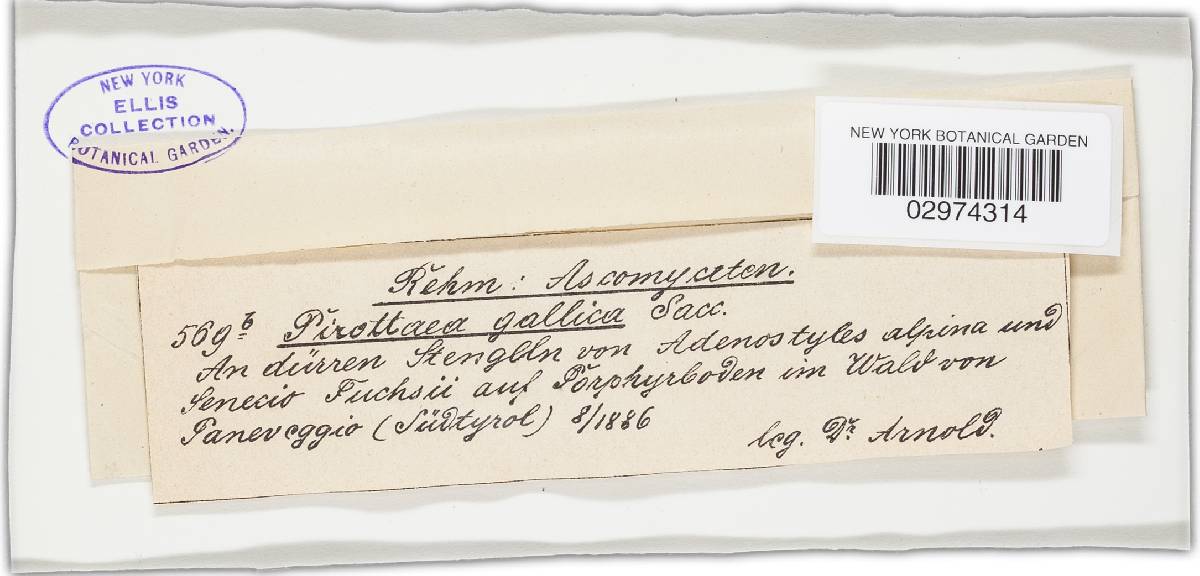 NEW YORK
ELLIS
COLLECTION
BOTANICAL GARDEN.
NEW YORK BOTANICAL GARDEN
02974314
Rehm: Ascomyceten.
569b Pirottaea gallica Sacc.
An dürren Stengeln von Adenostyles alpina und
Senecio Fuchsii auf Porphyrboden im Wald von
Paneveggio (Südtyrol) 8/1886
leg. Dr. Arnold.